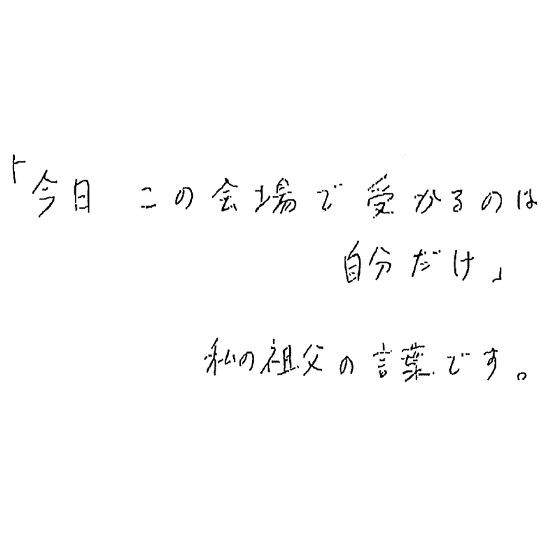 「今日 この会場で受かるのは
自分だけ」
私の祖父の言葉です。